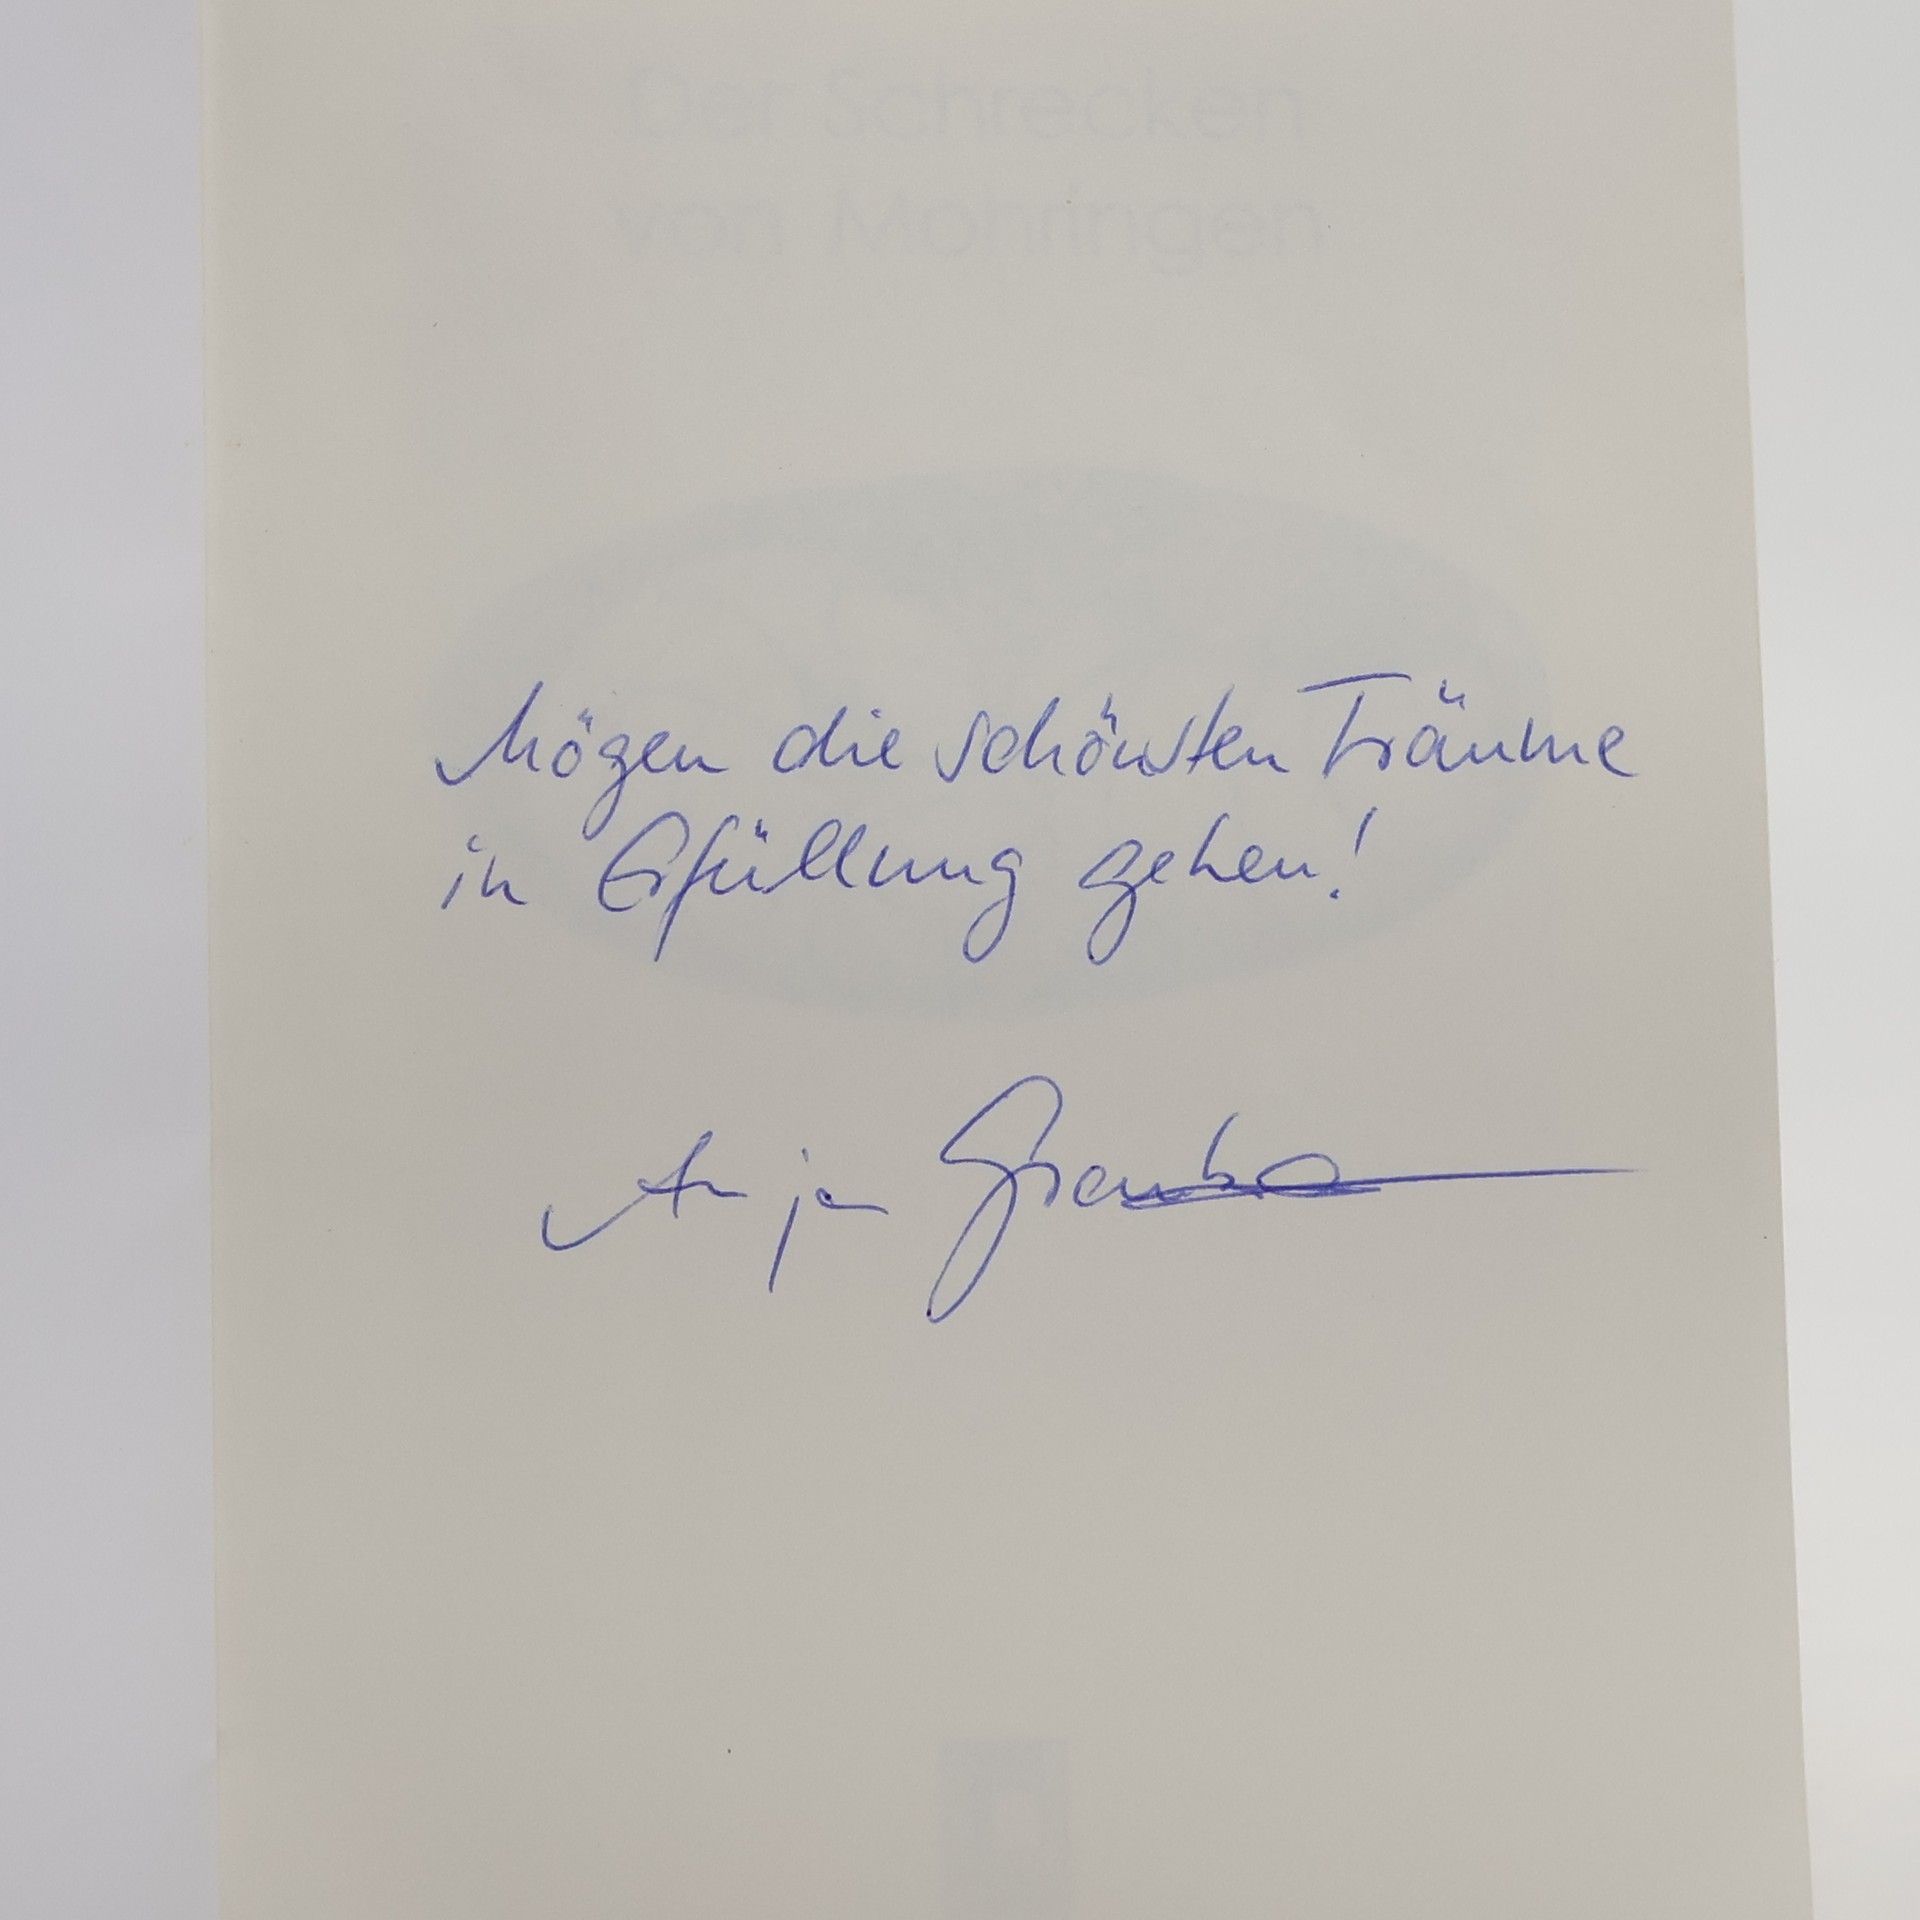 Der Schrecken
von Mohringen
Mögen die schönsten Träume
in Erfüllung gehen!
Anja